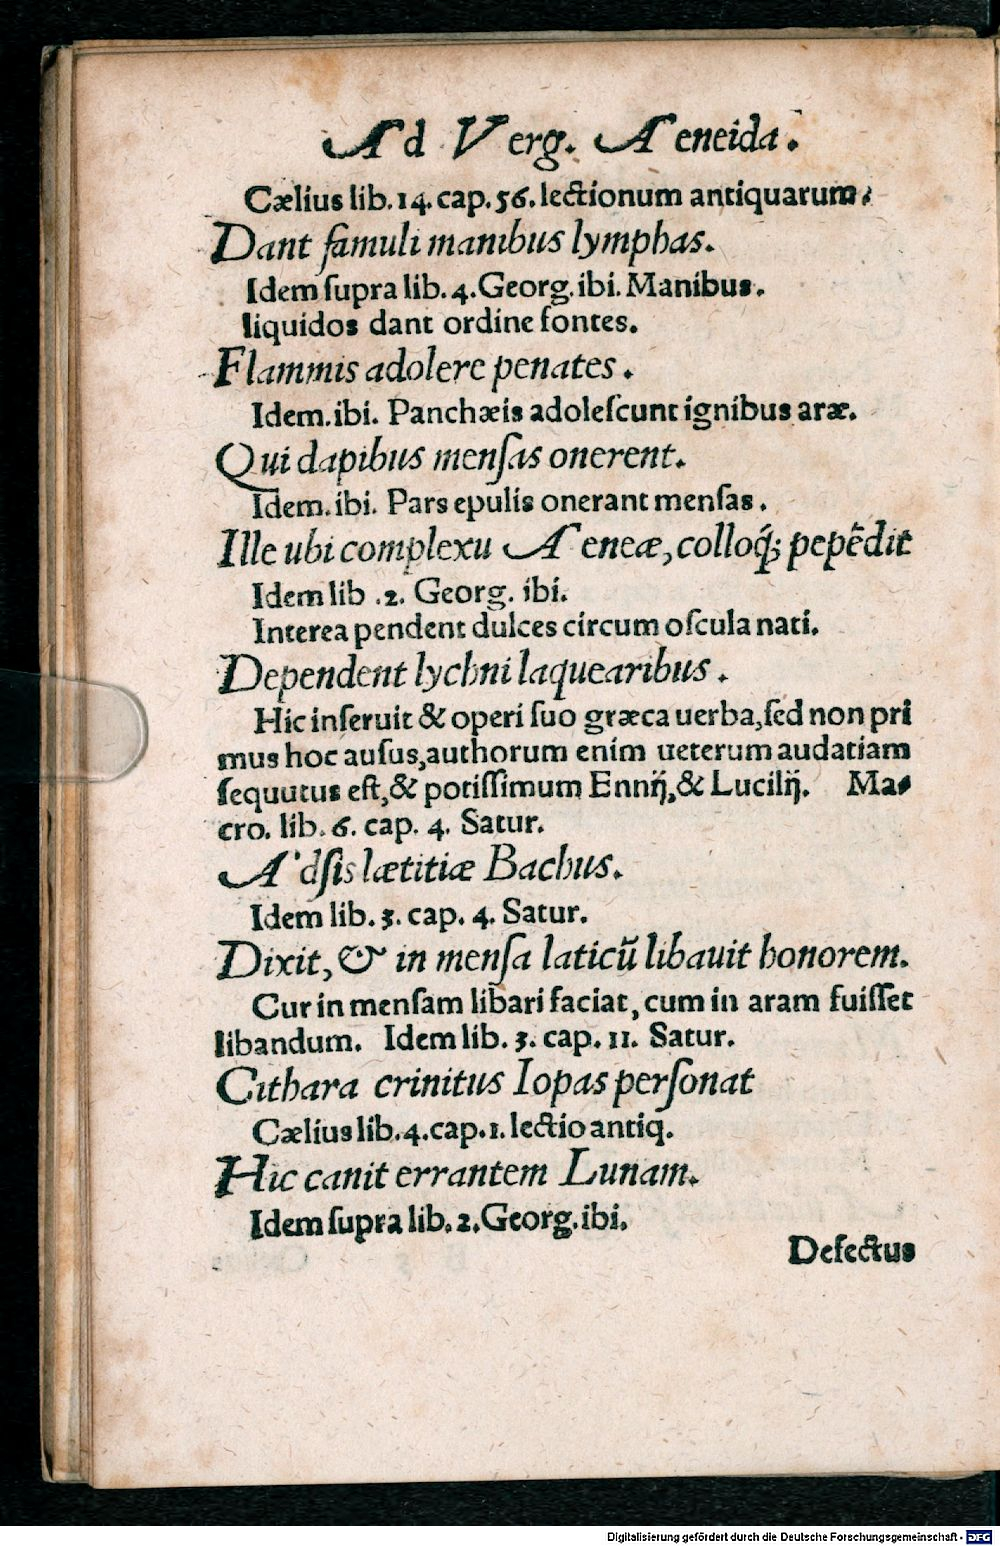 Ad Verg. Aeneida.
Cælius lib. 14. cap. 56. lectionum antiquarum.
Dant famuli manibus lymphas.
Idem supra lib. 4. Georg. ibi. Manibus.
liquidos dant ordine fontes.
Flammis adolere penates.
Idem. ibi. Panchæis adolescunt ignibus aræ.
Qui dapibus mensas onerent.
Idem. ibi. Pars epulis onerant mensas.
Ille ubi complexu Aeneæ, colloq́; pepēdit
Idem lib .2. Georg. ibi.
Interea pendent dulces circum oscula nati.
Dependent lychni laquearibus.
Hic inseruit & operi suo græca uerba, sed non pri
mus hoc ausus, authorum enim ueterum audatiam
sequutus est, & potissimum Ennij, & Lucilij. Ma-
cro. lib. 6. cap. 4. Satur.
Adsis lætitiæ Bachus.
Idem lib. 3. cap. 4. Satur.
Dixit, & in mensa laticũ libauit honorem.
Cur in mensam libari faciat, cum in aram fuisset
libandum. Idem lib. 3. cap. 11. Satur.
Cithara crinitus Iopas personat
Cælius lib. 4. cap. 1. lectio antiq.
Hic canit errantem Lunam.
Idem supra lib. 2. Georg. ibi.
Defectus
Digitalisierung gefördert durch die Deutsche Forschungsgemeinschaft - DFG